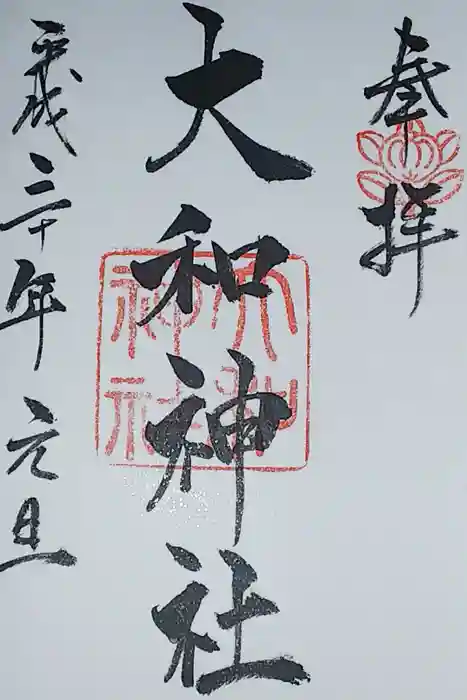 奉拝
大和神社
大和神社
平成三十年元旦